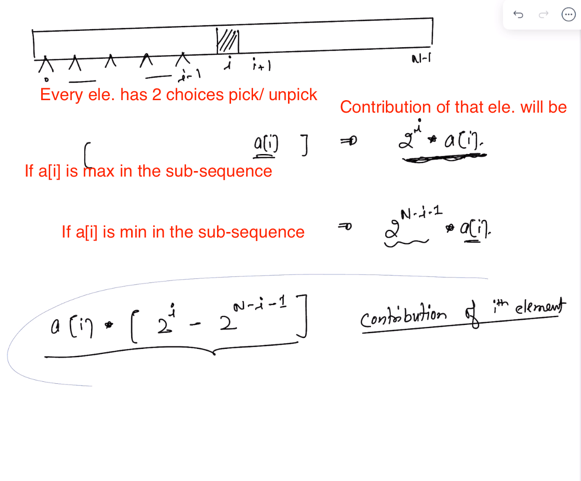 0 i-1 i i+1 N-1
Every ele. has 2 choices pick/ unpick
Contribution of that ele. will be
[ a[i] ] ⇒ 2^i * a[i].
If a[i] is max in the sub-sequence
If a[i] is min in the sub-sequence ⇒ 2^N-i-1 * a[i].
a[i] * [ 2^i - 2^N-i-1 ] Contribution of ith element